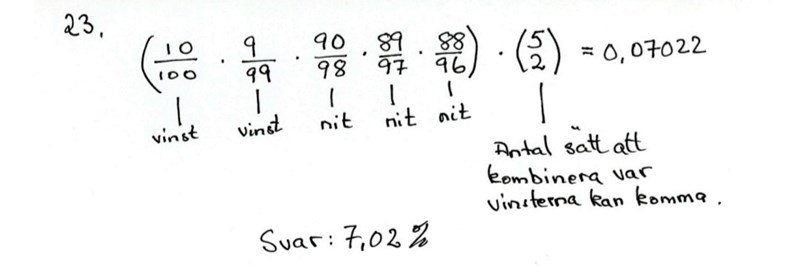 23.
(10/100 · 9/99 · 90/98 · 89/97 · 88/96) · (5 2) = 0,07022
vinst vinst nit nit nit
Antal sätt att
kombinera var
vinsterna kan komma.
Svar: 7,02 %